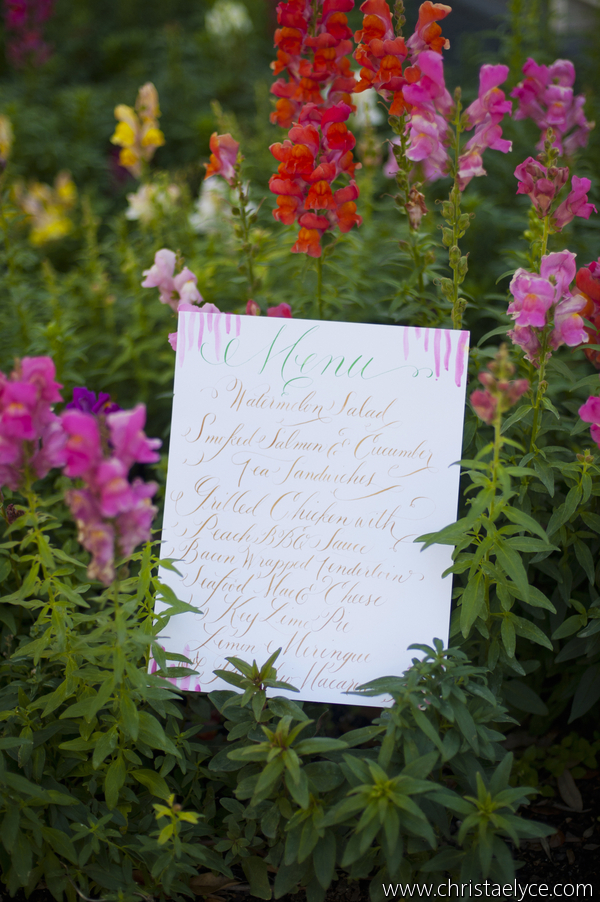 Menu
Watermelon Salad
Smoked Salmon & Cucumber
Tea Sandwiches
Grilled Chicken with
Peach BBQ Sauce
Bacon Wrapped Tenderloin
Seafood Mac & Cheese
Key Lime Pie
Lemon Meringue
Macaro
www.christaelyce.com